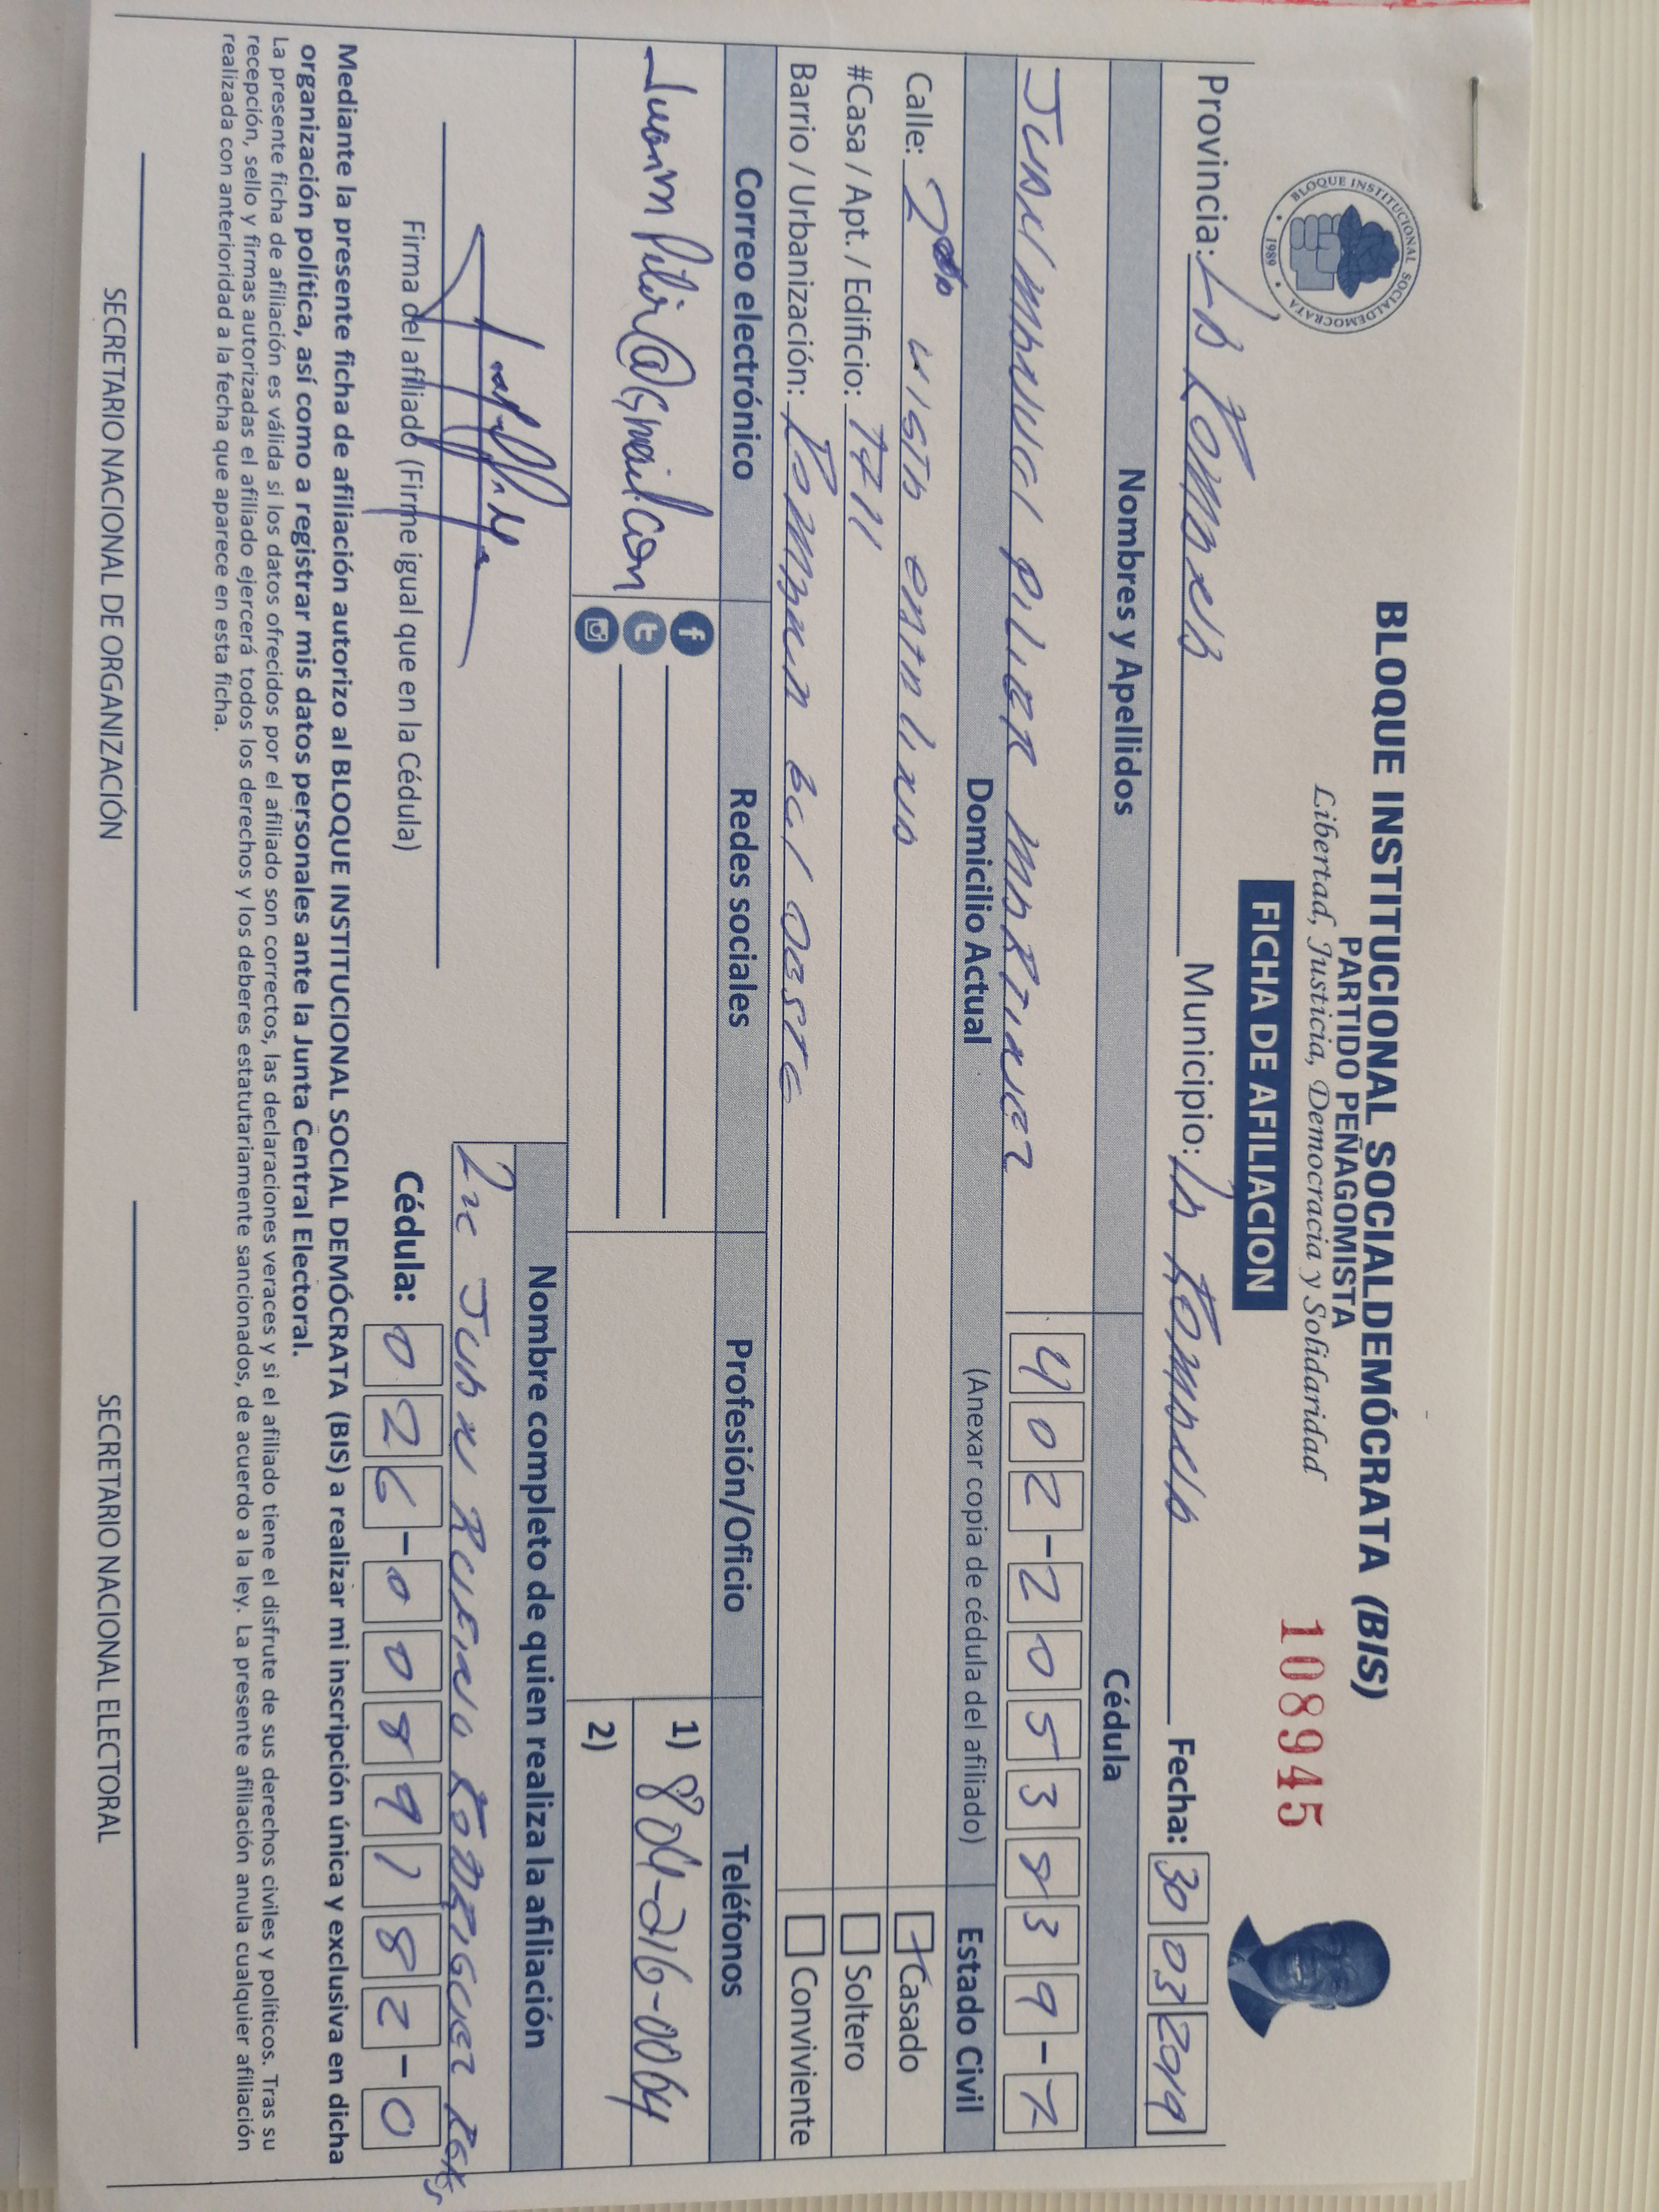 BLOQUE INSTITUCIONAL SOCIALDEMOCRATA
1989
BLOQUE INSTITUCIONAL SOCIALDEMÓCRATA (BIS)
PARTIDO PEÑAGOMISTA
Libertad, Justicia, Democracia y Solidaridad
FICHA DE AFILIACION
108945
Provincia: La Romana Municipio: La Romana Fecha: 30 03 2019
Nombres y Apellidos Cédula
Juan Manuel Pilier Martinez 402-2053839-7
Domicilio Actual (Anexar copia de cédula del afiliado) Estado Civil
Calle: 2da vista Catalina Casado
#Casa / Apt. / Edificio: Soltero
Barrio / Urbanización: Romana del Oeste Conviviente
Correo electrónico Redes sociales Profesión/Oficio Teléfonos
JuanPilier@Gmail.com f t 1) 809-216-0064
2)
Nombre completo de quien realiza la afiliación
Juan Rufino Rodriguez
Firma del afiliado (Firme igual que en la Cédula) Cédula: 026-0089182-0
Mediante la presente ficha de afiliación autorizo al BLOQUE INSTITUCIONAL SOCIAL DEMÓCRATA (BIS) a realizar mi inscripción única y exclusiva en dicha
organización política, así como a registrar mis datos personales ante la Junta Central Electoral.
La presente ficha de afiliación es válida si los datos ofrecidos por el afiliado son correctos, las declaraciones veraces y si el afiliado tiene el disfrute de sus derechos civiles y políticos. Tras su
recepción, sello y firmas autorizadas el afiliado ejercerá todos los derechos y los deberes estatutariamente sancionados, de acuerdo a la ley. La presente afiliación anula cualquier afiliación
realizada con anterioridad a la fecha que aparece en esta ficha.
SECRETARIO NACIONAL DE ORGANIZACIÓN SECRETARIO NACIONAL ELECTORAL